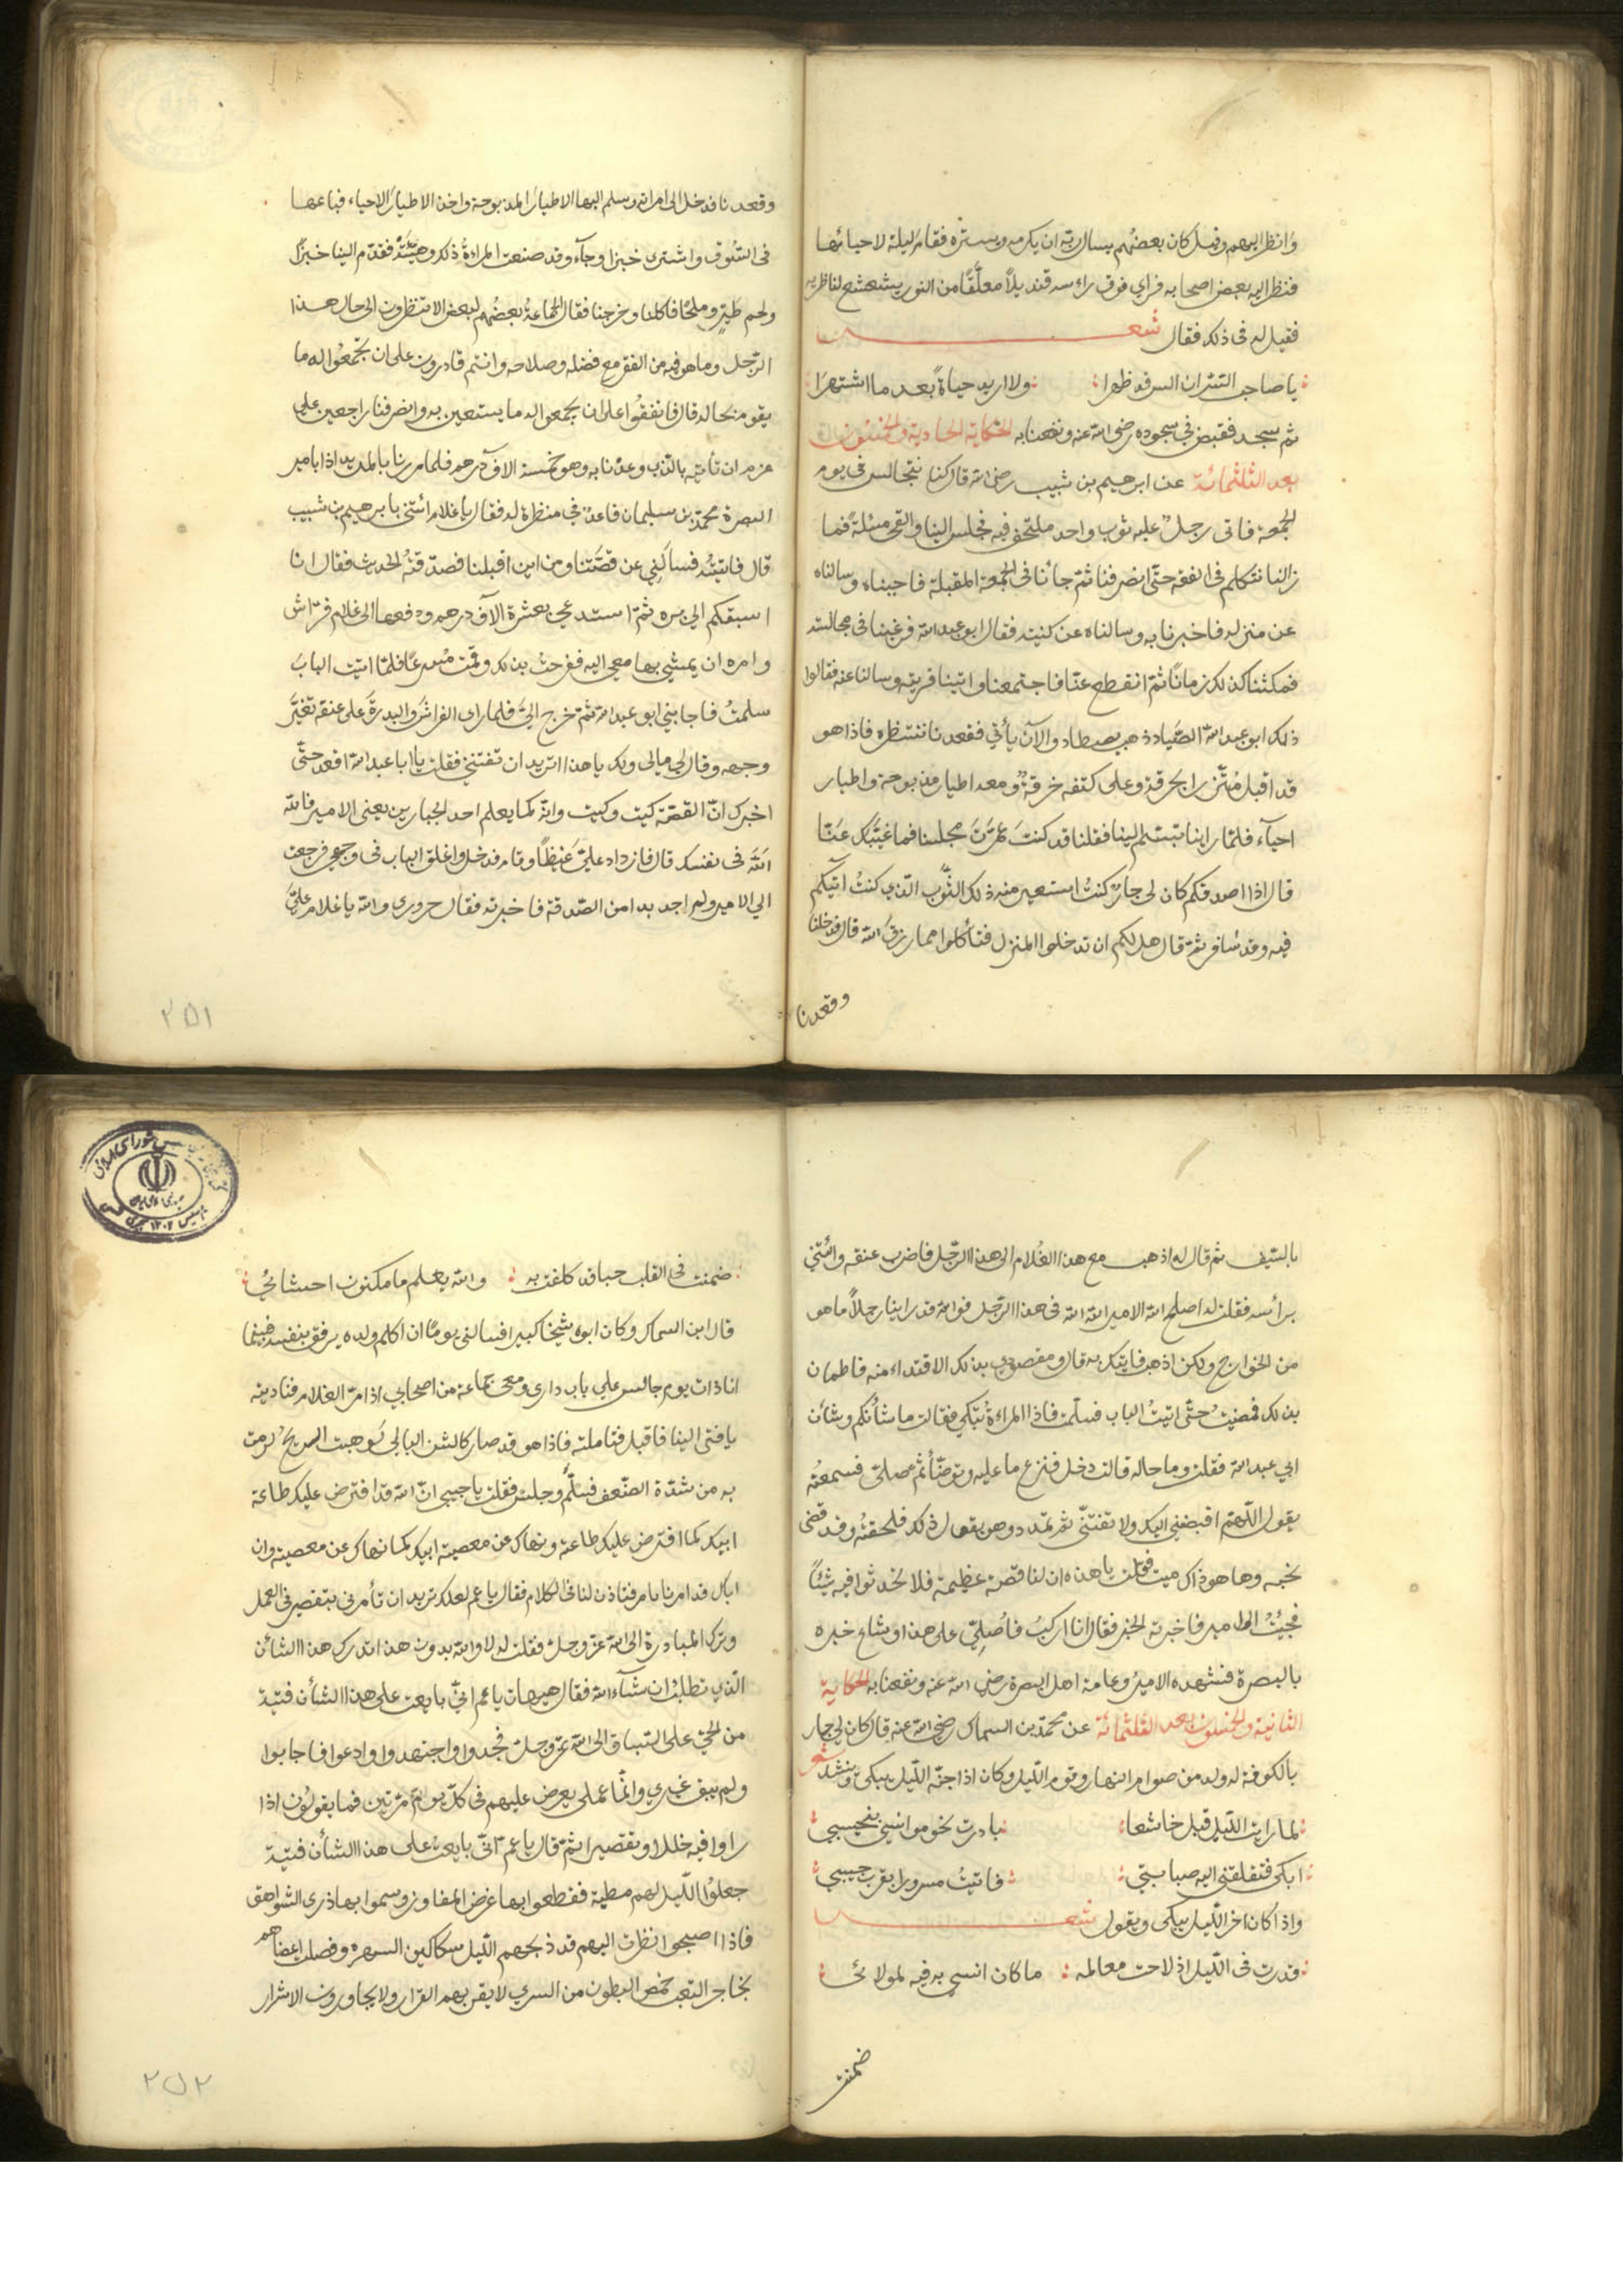 وانظر اليهم وقيل كان بعضهم يسال ربه ان يكرمه ويستره فقام ليلة لاحيائها
فنظر اليه بعض اصحابه فراي فوق راسه قنديلاً معلّقًا من النور يشعشع لناظريه
فقيل له في ذلك فقال شعـــر
يا صاحب السّر ان السر قد ظهرا ولا اريد حياةً بعد ما اشتهرا
ثم سجد فقبض في سجوده رضي الله عنه ونفعنا به الحكاية الحادية والخمسون
بعد الثلثمائة عن ابرهيم بن شبيب رضي الله قال كنا نتجالس في يوم
الجمعة فاتى رجلٌ عليه ثوب واحد ملتحف فيه فجلس الينا والقى مسئلة فما
زلنا نتكلم في الفقه حتّى انصرفنا ثمّ جأنا في الجمعة المقبلة فاحببناه وسالناه
عن منزله فاخبرنا به وسالناه عن كنيته فقال ابو عبد الله فرغبنا في مجالسته
فمكثنا كذلك زمانًا ثمّ انقطع عنّا فاجتمعنا واتينا قريته وسالنا عنه فقالوا
ذلك ابو عبد الله الصّياد ذهب يصطاد والآن يأتي فقعدنا ننتظره فاذا هو
قد اقبل مُتّزرا بخرقة وعلى كتفه خرقةٌ ومعه اطيار مذبوحة واطيار
احيآء فلمّا راينا تبسّم الينا فقلنا قد كنتَ عمّرتَ مجلسنا فما غيّبك عنّا
قال اذا اصدقكم كان لي جارٌ كنتُ استعير منه ذلك الثّوب الّذي كنتُ اتيكم
فيه وقد سافر ثمّ قال هل لكم ان تدخلوا المنزل فتأكلوا مما رزق الله قال فدخلنا
وقعدنا
وقعدنا فدخل الى امراته وسلم اليها الاطيار المذبوحة واخذ الاطيار الاحياء فباعها
في السّوق واشترى خبزا وجآء وقد صنعت المراةُ ذلك وهيّئتْه فقدّم الينا خبزًا
ولحم طيرٍ وملحًا فاكلنا وخرجنا فقال الجماعةُ بعضُهم لبعض الا تنظرون الى حال هذا
الرّجل وما هو فيه من الفقر مع فضله وصلاحه وانتم قادرون على ان تجمعُوا له ما
يقوم بحاله قال فاتفقُوا على ان يجمعوا له ما يستعين به وانصرفنا راجعين على
عزم ان نأتيه بالّذي وعدنا به وهو خمسة الاف درهم فلما مررنا بالمربد اذا بامير
البصرة محمّد بن سليمان قاعدٌ في منظرة له فقال يا غلام ائتني بابرهيم بن شبيب
قال فاتيتُه فسالَني عن قصّتنا ومن اين اقبلنا فصدّقتهُ الحديث فقال انا
اسبقكم الى بره ثمّ استدعى بعشرة الآف درهم ودفعها الى غلام فرّاش
وامره ان يمشي بها معي اليه ففرحتُ بذلك وقمت مُسرعًا فلمّا اتيت البابَ
سلمتُ فاجابني ابو عبد الله ثمّ خرج اليّ فلما راى الفراش والبدرةَ على عنقه تغيّر
وجهه وقال لي مالي ولك يا هذا اتريد ان تفتنني فقلت يا ابا عبد الله اقعد حتّى
اخبرك انّ القصّة كيت وكيت وانّه كما يعلم احد الجبارين يعني الامير فالله
اللهَ في نفسك قال فازداد عليّ غيظًا وقام فدخل واغلق الباب في وجهي فرجعت
الى الامير ولم اجد بدا من الصّدقة فاخبرته فقال حروري والله يا غلام عليّ
٢٥١
بالسّيف ثم قال له اذهب مع هذا الغُلام الى هذا الرّجل فاضرب عنقه وائتني
برأسه فقلت له اصلح الله الامير الله الله في هذا الرّجل فوالله قد راينا رجلاً ما هو
من الخوارج ولكن اذهب فايتك به قال ومقصودي بذلك الافتداء منه فاطمان
بذلك فمضيتُ حتّى اتيتُ الباب فسلّمت فاذا المراةُ تبكي فقالت ما شأنكم وشان
ابي عبد الله فقلت وما حاله قالت دخل فنزع ما عليه وتوضّأ ثم صلّى فسمعتُه
يقول اللّهمّ اقبضني اليك ولا تفتنّي ثم تمدد وهو يقول ذلك فلحقتُه وقد قضى
نحبه وها هو ذاك ميت فقلت يا هذه ان لنا قصّة عظيمة فلا تحدثوا فيه شيئًا
فجئتُ الى الامير فاخبرته الخبر فقال انا اركبُ فاُصلِّي على هذا وشاع خبره
بالبصرة فشهده الاميرُ وعامة اهل البصرة رضي الله عنه ونفعنا به الحكاية
الثانية والخمسون بعد الثلثمائة عن محمّد بن السماك رضي الله عنه قال كان لي جار
بالكوفة له ولد من صوام النهار وقوم اللّيل وكان اذا جنّه اللّيل يبكي وينشد شعر
لما رايت اللّيل قبل خاشعا بادرت نحو موانسي بنحيبي
ابكي فتقلقني اليه صبابتي فاتيتُ مسرورا بقرب حبيبي
واذا كان اخر اللّيل يبكي ويقول شعـــر
قدرت في اللّيل اذ لاحت معالمه ما كان انسي به فيه لمولائى
ضمنت
ضمنت في القلب حبا قد كلفت به والله يعلم ما مكنون احشائي
قال ابن السماك وكان ابوه شيخا كبيرا فسالني يومًا ان اكلم ولده يرفق بنفسه فبينما
انا ذات يوم جالس على باب داري ومعي جماعة من اصحابي اذا مرّ الغلام فناديته
يا فتى الينا فاقبل فتاملته فاذا هو قد صار كالشن البالي لَو هبت الريح لرمت
به من شدّة الضّعف فسلّم وجلس فقلت يا حبيبي انّ الله قد افترض عليك طاعة
ابيك كما افترض عليك طاعته ونهاك عن معصية ابيك كما نهاك عن معصيته وان
اباك قد امرنا بامر فتاذن لنا في الكلام فقال يا عم لعلك تريد ان تأمرني بتقصير في العمل
وترك المبادرة الى الله عزّ وجلّ فقلت له لا والله بدون هذا تدرك هذا الشأن
الّذي تطلب ان شآء الله فقال هيهات يا عم انّي بايعت على هذا الشأن فتيةً
من الحيّ على السّباق الى الله عزّ وجلّ فجدوا واجتهدوا ودعوا فاجابوا
ولم يبق غيري وانّما عملي يعرض عليهم في كلّ يوم مرّتين فما يقولُون اذا
راوا فيه خللا وتقصيرا ثمّ قال يا عم انّي بايعتُ على هذا الشأن فتيةً
جعلُوا اللّيل لهم مطية فقطعوا بها عرض المفاوز وسموا بها ذرى الشواهق
فاذا اصبحوا نظرت اليهم قد ذبحهم اللّيل بسكاكين السهر وفصلت اعضاهم
بخناجر التعب خمص البطون من السرى لا يقر بهم القرار ولا يجاورون الاشرار
٢٥٢